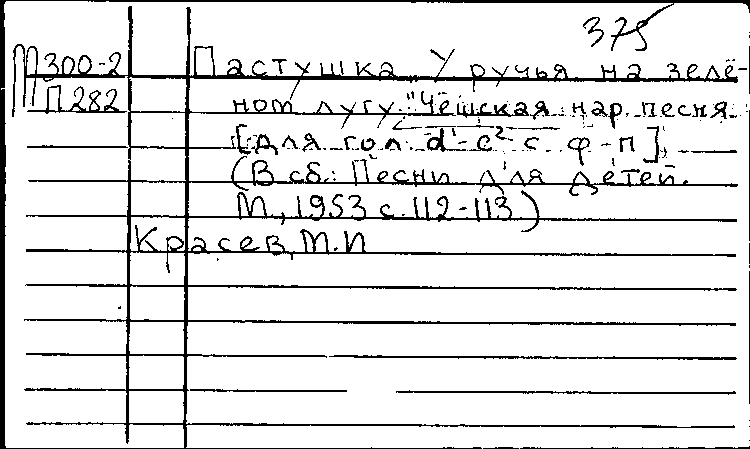 375
М300-2 Пастушка. У ручья на зелё-
П282 ном лугу." Чешская нар. песня.
[для гол. d¹-e² с ф-п].
(В сб.: Песни для детей.
М., 1953 с. 112-113.)
Красев, М.И